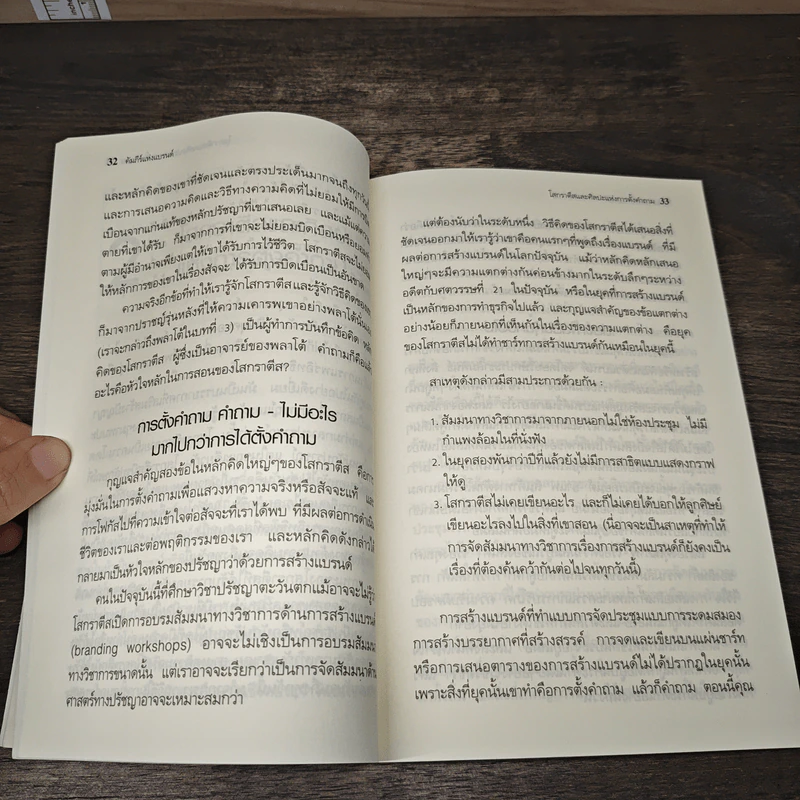 32 คัมภีร์แห่งแบรนด์
และหลักคิดของเขาที่ชัดเจนและตรงประเด็นมากจนถึงทุกวัน
และการเสนอความคิดและวิธีทางความคิดที่ไม่ยอมให้มีการ
เบือนจากแก่นแท้ของหลักปรัชญาที่เขาเสนอเลย และแม้แต่
ตายที่เขาได้รับ ก็มาจากการที่เขาจะไม่ยอมบิดเบือนหรือยอม
ตามผู้มีอำนาจเพียงแต่ให้เขาได้รับการไว้ชีวิต โสกราตีสจะไม่
ให้หลักการของเขาในเรื่องสัจจะ ได้รับการบิดเบือนเป็นอันขาด
ความจริงอีกข้อที่ทำให้เรารู้จักโสกราตีสและรู้จักวิธีคิดของ
ก็มาจากปราชญ์รุ่นหลังที่ให้ความเคารพเขาอย่างพลาโต้นั่น
(เราจะกล่าวถึงพลาโต้ในบทที่ 3) เป็นผู้ทำการบันทึกข้อคิด หลัก
คิดของโสกราตีส ผู้ซึ่งเป็นอาจารย์ของพลาโต้ คำถามก็คือ
อะไรคือหัวใจหลักในการสอนของโสกราตีส?
การตั้งคำถาม คำถาม - ไม่มีอะไร
มากไปกว่าการได้ตั้งคำถาม
กุญแจสำคัญสองข้อในหลักคิดใหญ่ๆของโสกราตีส คือ
มุ่งมั่นในการตั้งคำถามเพื่อแสวงหาความจริงหรือสัจจะแท้ และ
การโฟกัสไปที่ความเข้าใจต่อสัจจะที่เราได้พบ ที่มีผลต่อการดำเนิน
ชีวิตของเราและต่อพฤติกรรมของเรา และหลักคิดดังกล่าวได้
กลายมาเป็นหัวใจหลักของปรัชญาว่าด้วยการสร้างแบรนด์
คนในปัจจุบันนี้ที่ศึกษาวิชาปรัชญาตะวันตกแม้อาจจะไม่รู้
โสกราตีสเปิดการอบรมสัมมนาทางวิชาการด้านการสร้างแบรนด์
(branding workshops) อาจจะไม่เชิงเป็นการอบรมสัมมนา
ทางวิชาการขนาดนั้น แต่เราอาจจะเรียกว่าเป็นการจัดสัมมนาด้าน
ศาสตร์ทางปรัชญาอาจจะเหมาะสมกว่า
โสกราตีสและศิลปะแห่งการตั้งคำถาม 33
แต่ต้องนับว่าในระดับหนึ่ง วิธีคิดของโสกราตีสได้เสนอสิ่งที่
ชัดเจนออกมาให้เรารู้ว่าเขาคือคนแรกๆที่พูดถึงเรื่องแบรนด์ ที่มี
ผลต่อการสร้างแบรนด์ในโลกปัจจุบัน แม้ว่าหลักคิดหลักเสนอ
ใหญ่ๆจะมีความแตกต่างกันค่อนข้างมากในระดับลึกๆระหว่าง
อดีตกับศตวรรษที่ 21 ในปัจจุบัน หรือในยุคที่การสร้างแบรนด์
เป็นหลักของการทำธุรกิจไปแล้ว และกุญแจสำคัญของข้อแตกต่าง
อย่างน้อยก็ภายนอกที่เห็นกันในเรื่องของความแตกต่าง คือยุค
ของโสกราตีสไม่ได้ทำชาร์ทการสร้างแบรนด์กันเหมือนในยุคนี้
สาเหตุดังกล่าวมีสามประการด้วยกัน :
1. สัมมนาทางวิชาการมาจากภายนอกไม่ใช่ห้องประชุม ไม่มี
กำแพงล้อมในที่นั่งฟัง
2. ในยุคสองพันกว่าปีที่แล้วยังไม่มีการสาธิตแบบแสดงกราฟ
ให้ดู
3. โสกราตีสไม่เคยเขียนอะไร และก็ไม่เคยได้บอกให้ลูกศิษย์
เขียนอะไรลงไปในสิ่งที่เขาสอน (นี่อาจจะเป็นสาเหตุที่ทำให้
การจัดสัมมนาทางวิชาการเรื่องการสร้างแบรนด์ก็ยังคงเป็น
เรื่องที่ต้องค้นคว้ากันต่อไปจนทุกวันนี้)
การสร้างแบรนด์ที่ทำแบบการจัดประชุมแบบการระดมสมอง
การสร้างบรรยากาศที่สร้างสรรค์ การจดและเขียนบนแผ่นชาร์ท
หรือการเสนอตารางของการสร้างแบรนด์ไม่ได้ปรากฏในยุคนั้น
เพราะสิ่งที่ยุคนั้นเขาทำคือการตั้งคำถาม แล้วก็คำถาม ตอนนี้คุณ